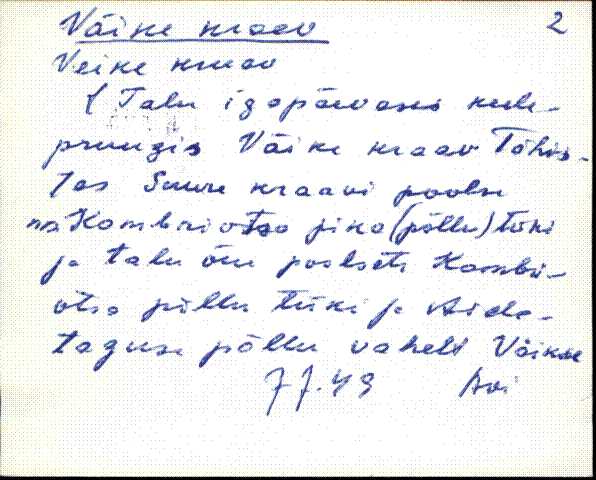 Väike kraav 2
Veike kraav
(Talu igapäevases keele-
pruugis Väike kraav Tähis-
tas Suure kraavi poolse
Kambriotsa pika (põllu) tüki
ja talu õue poolsete Kambri-
otsa põllu tüki ja Aida-
taguse põllu vahelt Väikse